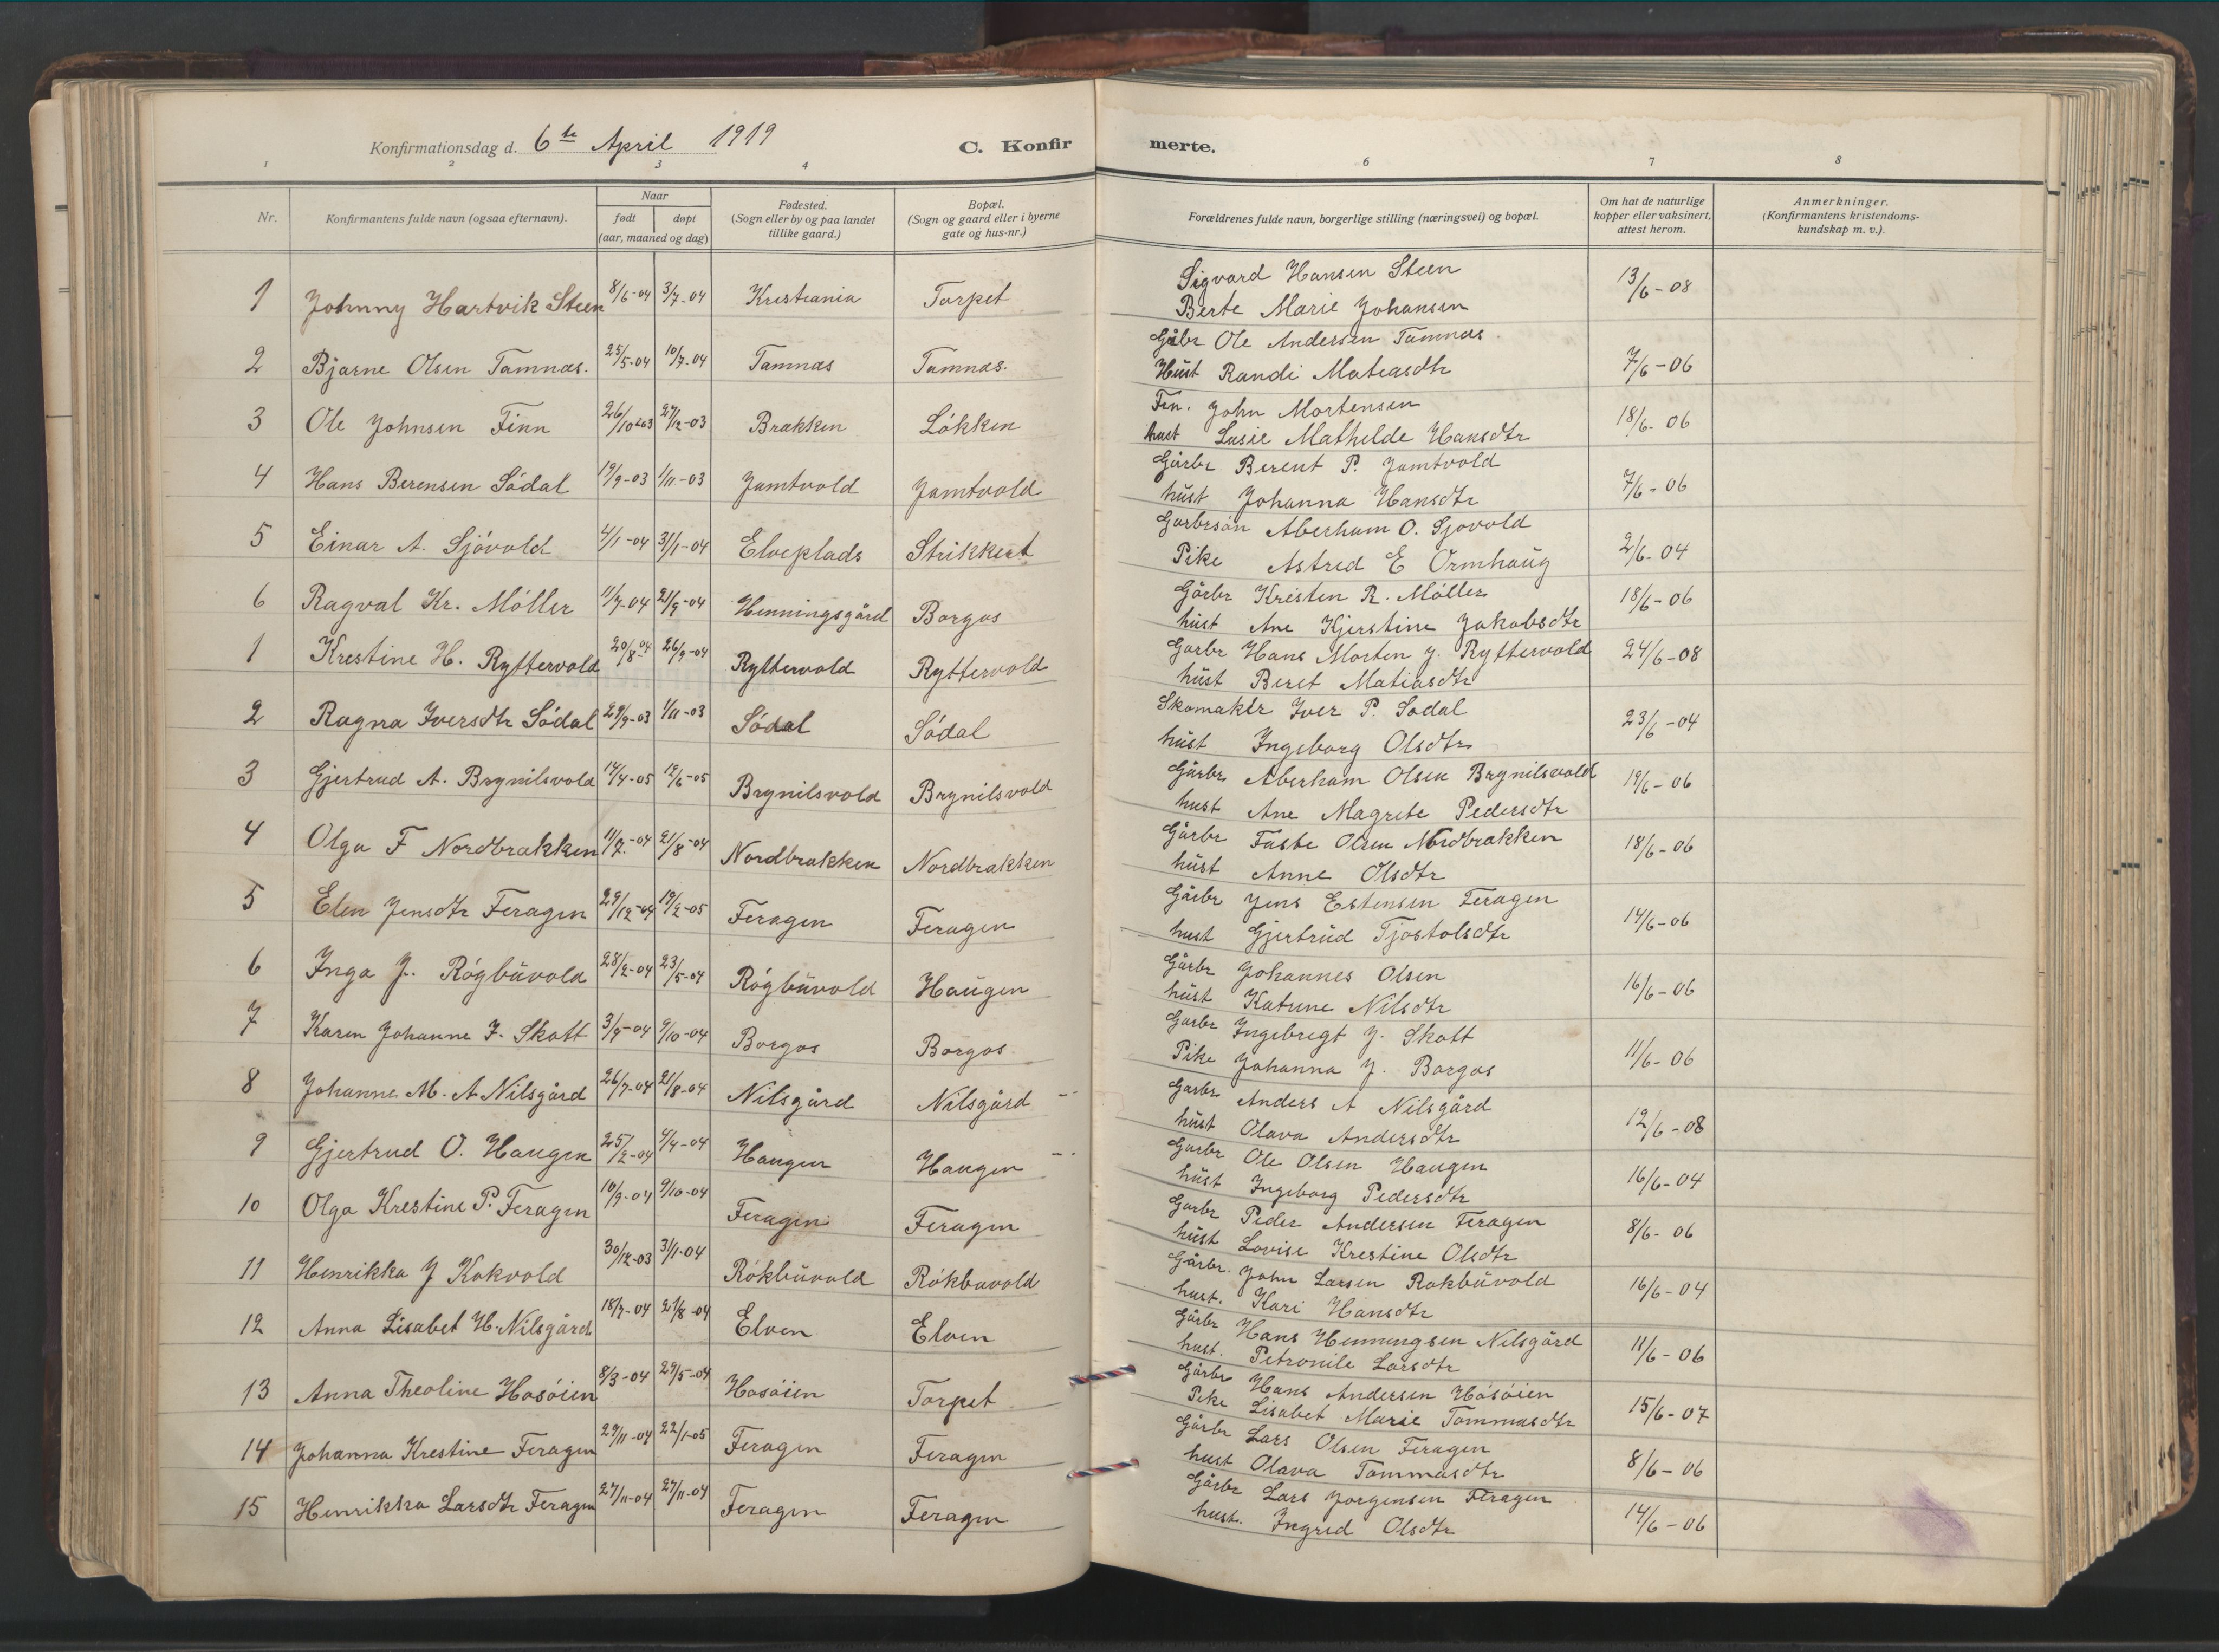 Konfirmationsdag d. 6te April 1919
C. Konfirmerte.
1 2 3 4 6 7 8
Nr. Konfirmantens fulde navn (ogsaa efternavn). Naar født døpt (aar, maaned og dag) Fødested. (Sogn eller by og paa landet tillike gaard.) Bopæl. (Sogn og gaard eller i byerne gate og hus-nr.) Forældrenes fulde navn, borgerlige stilling (næringsvei) og bopæl. Om hat de naturlige kopper eller vaksinert, attest herom. Anmerkninger. (Konfirmantens kristendomskundskap m. v.).
1 Johnny Hartvik Steen 8/6-04 3/7-04 Kristiania Torpet Sigvard Hansen Steen 13/6-08
Berte Marie Johansen
2 Bjarne Olsen Tamnæs. 25/5-04 10/7-04 Tamnæs Tamnæs. Gårbr Ole Andersen Tamnæs. 7/6-06
Hust Randi Matiasdtr
3 Ole Johnsen Finn 26/10-03 27/12-03 Brækken Lökken Fin. John Mortensen 18/6-06
hust Lusie Mathilde Hansdtr
4 Hans Berensen Södal 19/9-03 1/11-03 Jamtvold Jamtvold Gårbr Berent P. Jamtvold 7/6-06
hust Johanna Hansdtr
5 Einar A. Sjövold 4/1-04 31/1-04 Elveplads Strikkert Garbrsön Aberham O. Sjovold 2/6-04
Pike Astred E Ormhaug
6 Ragval Kr. Möller 11/7-04 21/9-04 Henningsgård Borgos Gårbr Kristen R. Möller 18/6-06
hust Ane Kjerstine Jakobsdtr
1 Krestine H. Ryttervold 20/8-04 26/9-04 Ryttervold Ryttervold Garbr Hans Morten J. Ryttervold 24/6-08
hust Beret Matiasdtr
2 Ragna Iversdtr Södal 29/9-03 1/11-03 Södal Södal Skomaker Iver P. Sodal 23/6-04
hust Ingeborg Olsdtr
3 Gjertrud A. Brynilsvold 14/4-05 12/6-05 Brynilsvold Brynilsvold Gårbr Aberham Olsen Brynilsvold 19/6-06
hust Ane Magrete Pedersdtr
4 Olga F Nordbrækken 11/7-04 21/8-04 Nordbrækken Nordbrækken Gårbr Faste Olsen Nordbrækken 18/6-06
hust Anne Olsdtr
5 Elen Jensdtr Feragen 29/12-04 19/2-05 Feragen Feragen Gårbr Jens Estensen Feragen 14/6-06
hust Gjertrud Tjostolsdtr
6 Inga J. Rögbuvold 28/2-04 23/5-04 Rögbuvold Haugen Gårbr Johannes Olsen 16/6-06
hust Katrine Nilsdtr
7 Karen Johanne I. Skott 3/9-04 9/10-04 Borgos Borgos Garbr Ingebregt J. Skott 11/6-06
Pike Johanna J. Borgos
8 Johanne M. A. Nilsgård 26/7-04 21/8-04 Nilsgård Nilsgård Garbr Anders A Nilsgård 12/6-08
hust Olava Andersdtr
9 Gjertrud O. Haugen 25/2-04 4/4-04 Haugen Haugen Garbr Ole Olsen Haugen 16/6-04
hust Ingeborg Pedersdtr
10 Olga Krestine P. Feragen 10/9-04 9/10-04 Feragen Feragen Garbr Peder Andersen Feragen 8/6-06
hust Lovise Krestine Olsdtr
11 Henrikka J Kokvold 30/12-03 31/1-04 Rökbuvold Rökbuvold Gårbr. John Larsen Rokbuvold 16/6-04
hust. Kari Hansdtr
12 Anna Lisabet H. Nilsgård 18/7-04 21/8-04 Elven Elven Gårbr Hans Henningsen Nilsgård 11/6-06
hust. Petronile Larsdtr
13 Anna Theoline Hosöien 8/3-04 29/5-04 Hosöien Torpet Gårbr Hans Andersen Hosöien 15/6-07
Pike Lisabet Marie Tommasdtr
14 Johanna Krestine Feragen 29/11-04 22/1-05 Feragen Feragen Gårbr Lars Olsen Feragen 8/6-06
hust Olava Tommasdtr
15 Henrikka Larsdtr Feragen 27/11-04 27/11-04 Feragen Feragen Gårbr Lars Jorgensen Feragen 14/6-06
hust. Ingrid Olsdtr